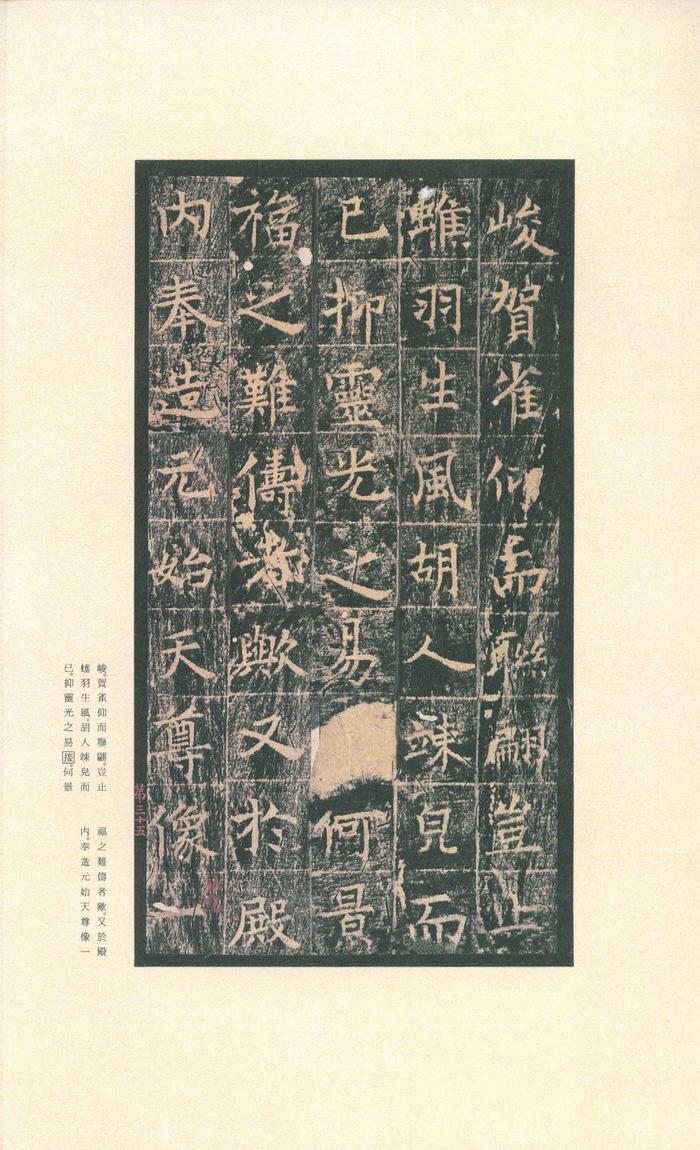 峻賀雀仰而聯翩豈止
蟭羽生風胡人竦皃而
已抑靈光之易何景
福之難儔者歟又於殿
内奉造元始天尊像一
第三十五
峻。賀雀仰而聯翩。豈止
蟭羽生風。胡人竦皃而
已。抑靈光之易接。何景
福之難儔者歟。又於殿
内。奉造元始天尊像一